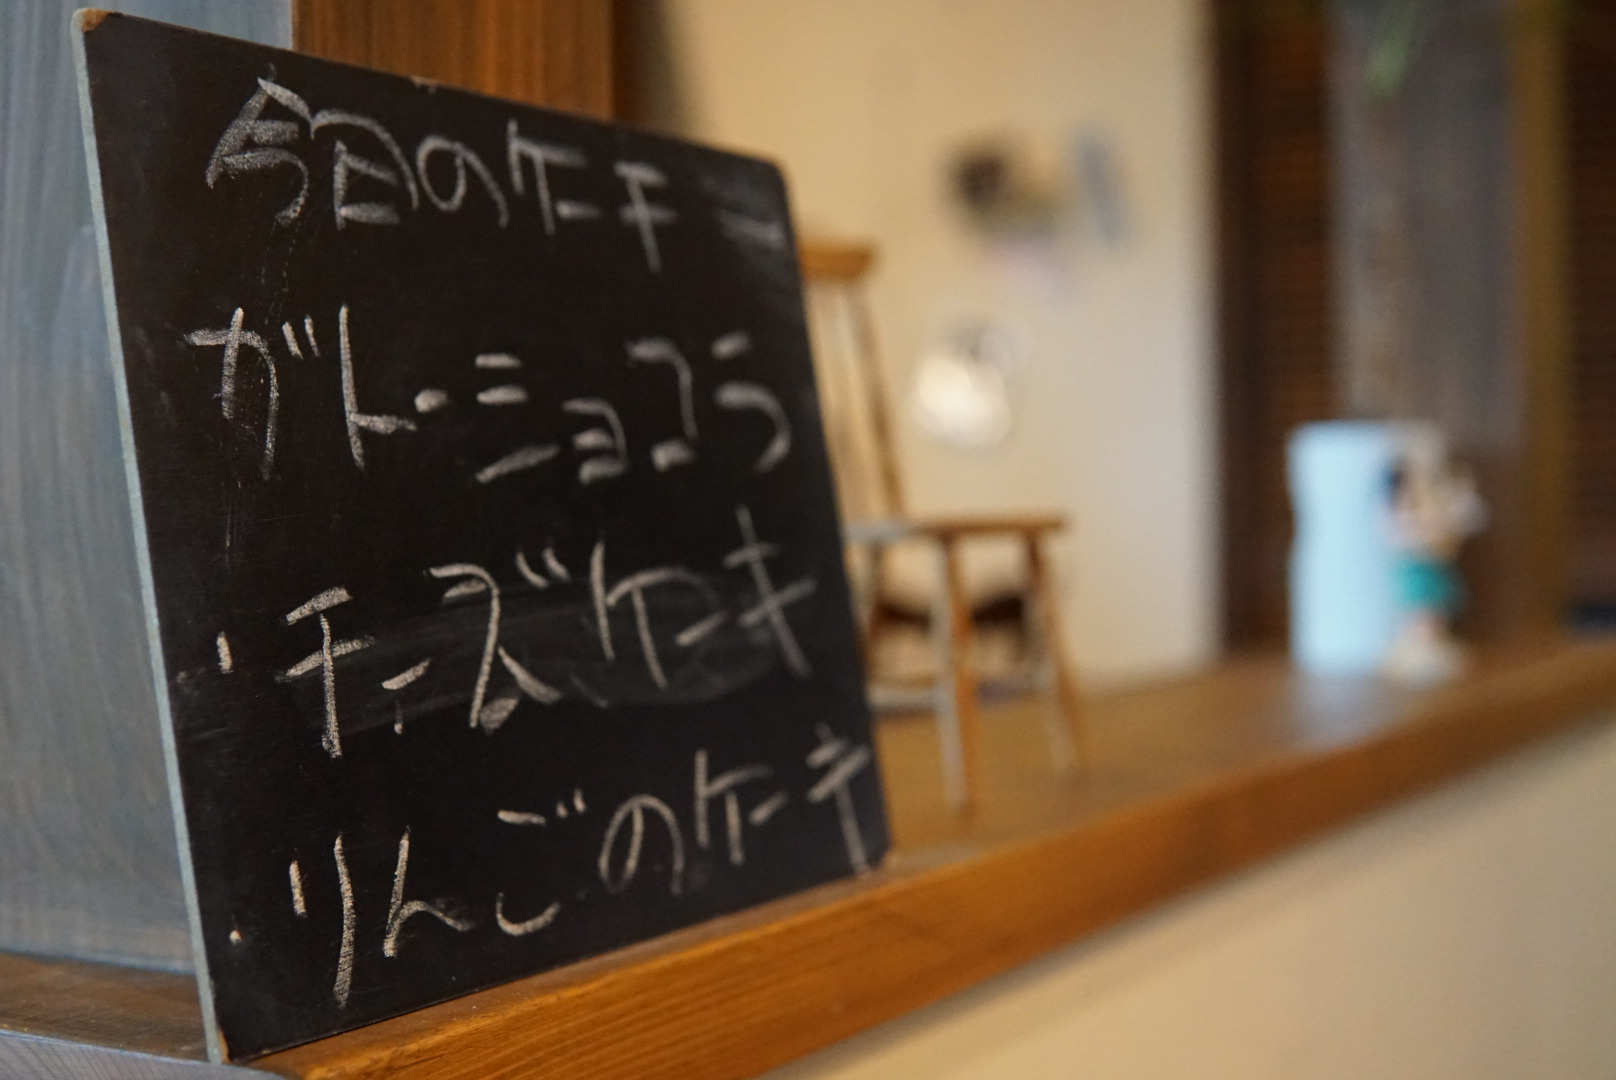 今日のケーキ
ガトーショコラ
・チーズケーキ
・りんごのケーキ